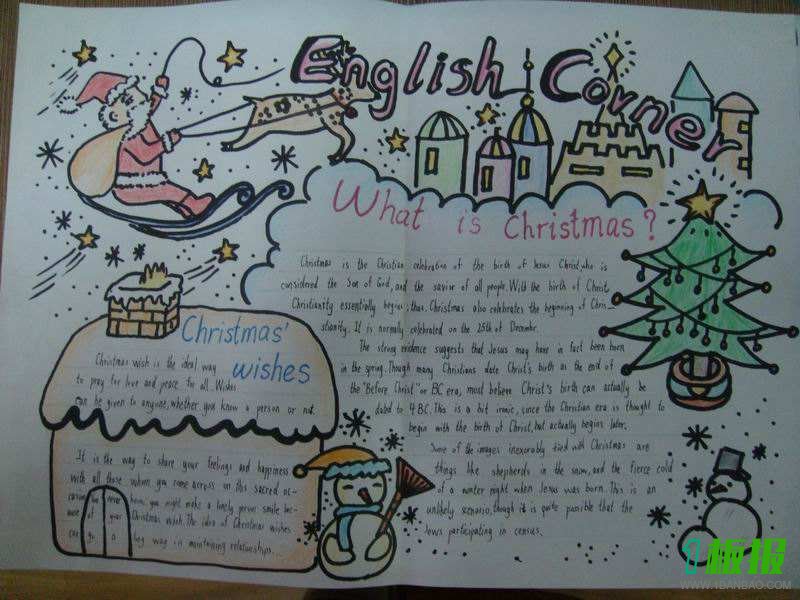 English Corner
What is Christmas?
Christmas is the Christian celebration of the birth of Jesus Christ, who is
considered the Son of God, and the savior of all people. With the birth of Christ
Christianity essentially begins, then. Christmas also celebrates the beginning of Chris-
stianity. It is normally celebrated on the 25th of December.
The strong evidence suggests that Jesus may have in fact been born
in the spring. Though many Christians date Christ's birth as the end of
the "Before Christ" or BC era, most believe Christ's birth can actually be
dated to 4 B.C. This is a bit ironic, since the Christian era is thought to
begin with the birth of Christ, but actually begins later.
Some of the images inexorably tied with Christmas are
things like shepherds in the snow, and the fierce cold
of a winter night when Jesus was born. This is an
unlikely scenario, though it is quite possible that the
Jews participating in census.
Christmas'
wishes
Christmas wish is the ideal way
to pray for love and peace for all. Wishes
can be given to anyone, whether you know a person or not.
It is the way to share your feelings and happiness
with all those whom you come across on this sacred oc-
casion never know, you might make a lonely person smile bec-
ause of your Christmas wish. The idea of Christmas wishes
can go a long way in maintaining relationships.
1板报
WWW.1BANBAO.COM